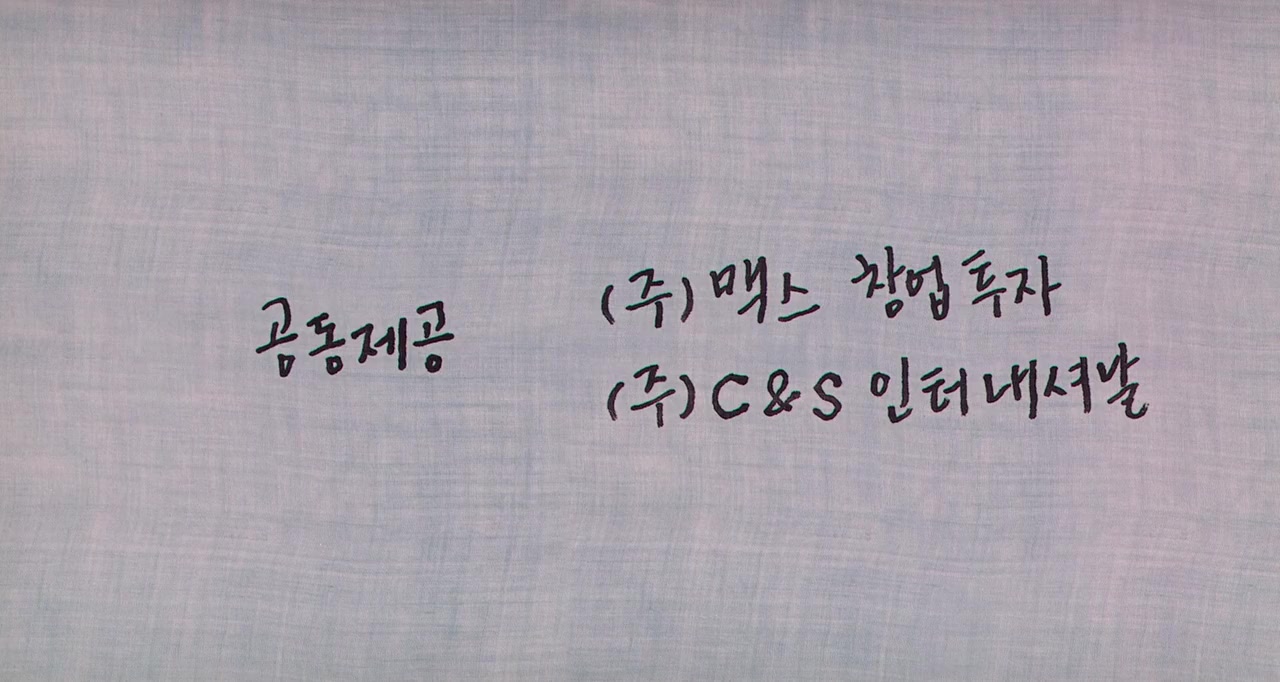 공동제공
(주)맥스 창업투자
(주)C&S 인터내셔날